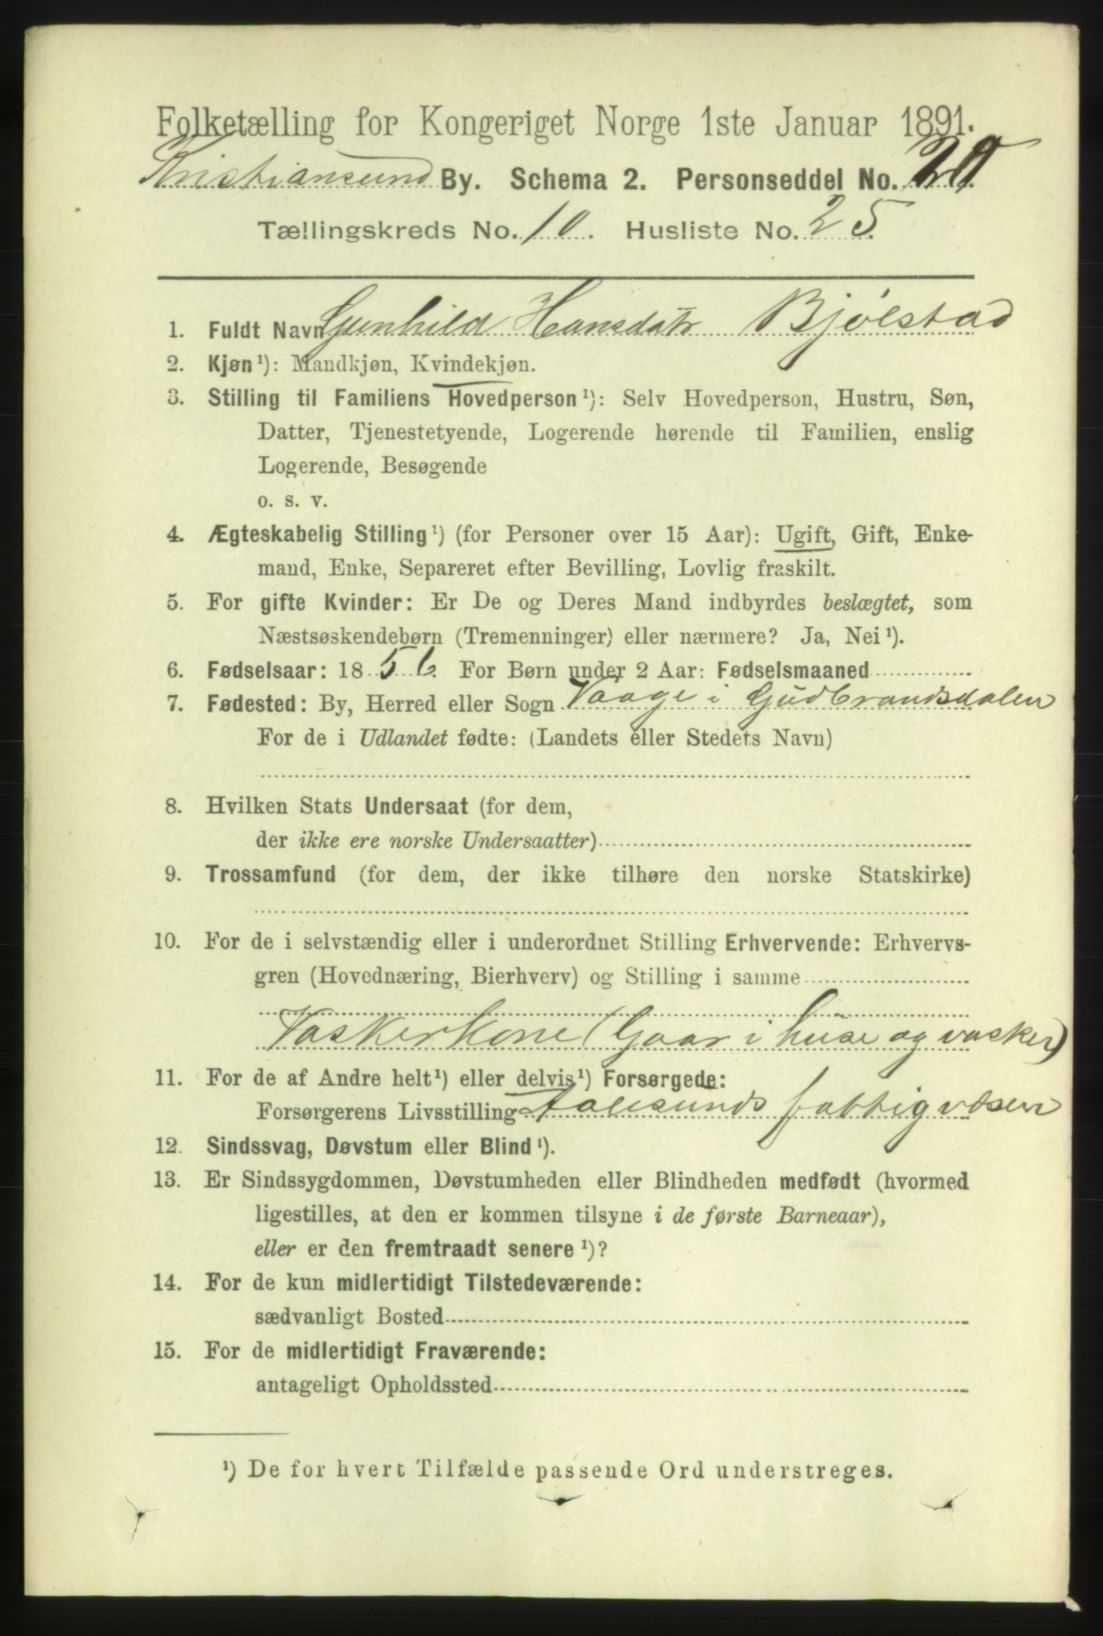 Folketælling for Kongeriget Norge 1ste Januar 1891.
Kristiansund By. Schema 2. Personseddel No. 20
Tællingskreds No. 10. Husliste No. 25.
1. Fuldt Navn Gunhild Hansdatr Bjölstad
2. Kjøn¹): Mandkjøn, Kvindekjøn.
3. Stilling til Familiens Hovedperson¹): Selv Hovedperson, Hustru, Søn,
Datter, Tjenestetyende, Logerende hørende til Familien, enslig
Logerende, Besøgende
o. s. v.
4. Ægteskabelig Stilling¹) (for Personer over 15 Aar): Ugift, Gift, Enke-
mand, Enke, Separeret efter Bevilling, Lovlig fraskilt.
5. For gifte Kvinder: Er De og Deres Mand indbyrdes beslægtet, som
Næstsøskendebørn (Tremenninger) eller nærmere? Ja, Nei¹).
6. Fødselsaar: 1856. For Børn under 2 Aar: Fødselsmaaned
7. Fødested: By, Herred eller Sogn Vaage i Gudbrandsdalen
For de i Udlandet fødte: (Landets eller Stedets Navn)
8. Hvilken Stats Undersaat (for dem,
der ikke ere norske Undersaatter)
9. Trossamfund (for dem, der ikke tilhøre den norske Statskirke)
10. For de i selvstændig eller i underordnet Stilling Erhvervende: Erhvervs-
gren (Hovednæring, Bierhverv) og Stilling i samme
Vaskerkone (Gaar i huse og vasker)
11. For de af Andre helt¹) eller delvis¹) Forsørgede:
Forsørgerens Livsstilling Aalesunds fattigvæsen
12. Sindssvag, Døvstum eller Blind¹).
13. Er Sindssygdommen, Døvstumheden eller Blindheden medfødt (hvormed
ligestilles, at den er kommen tilsyne i de første Barneaar),
eller er den fremtraadt senere¹)?
14. For de kun midlertidigt Tilstedeværende:
sædvanligt Bosted
15. For de midlertidigt Fraværende:
antageligt Opholdssted
¹) De for hvert Tilfælde passende Ord understreges.